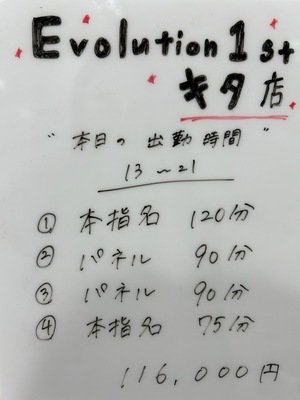 Evolution 1st
キタ店
"本日の出勤時間"
13~21
① 本指名 120分
② パネル 90分
③ パネル 90分
④ 本指名 75分
116,000円